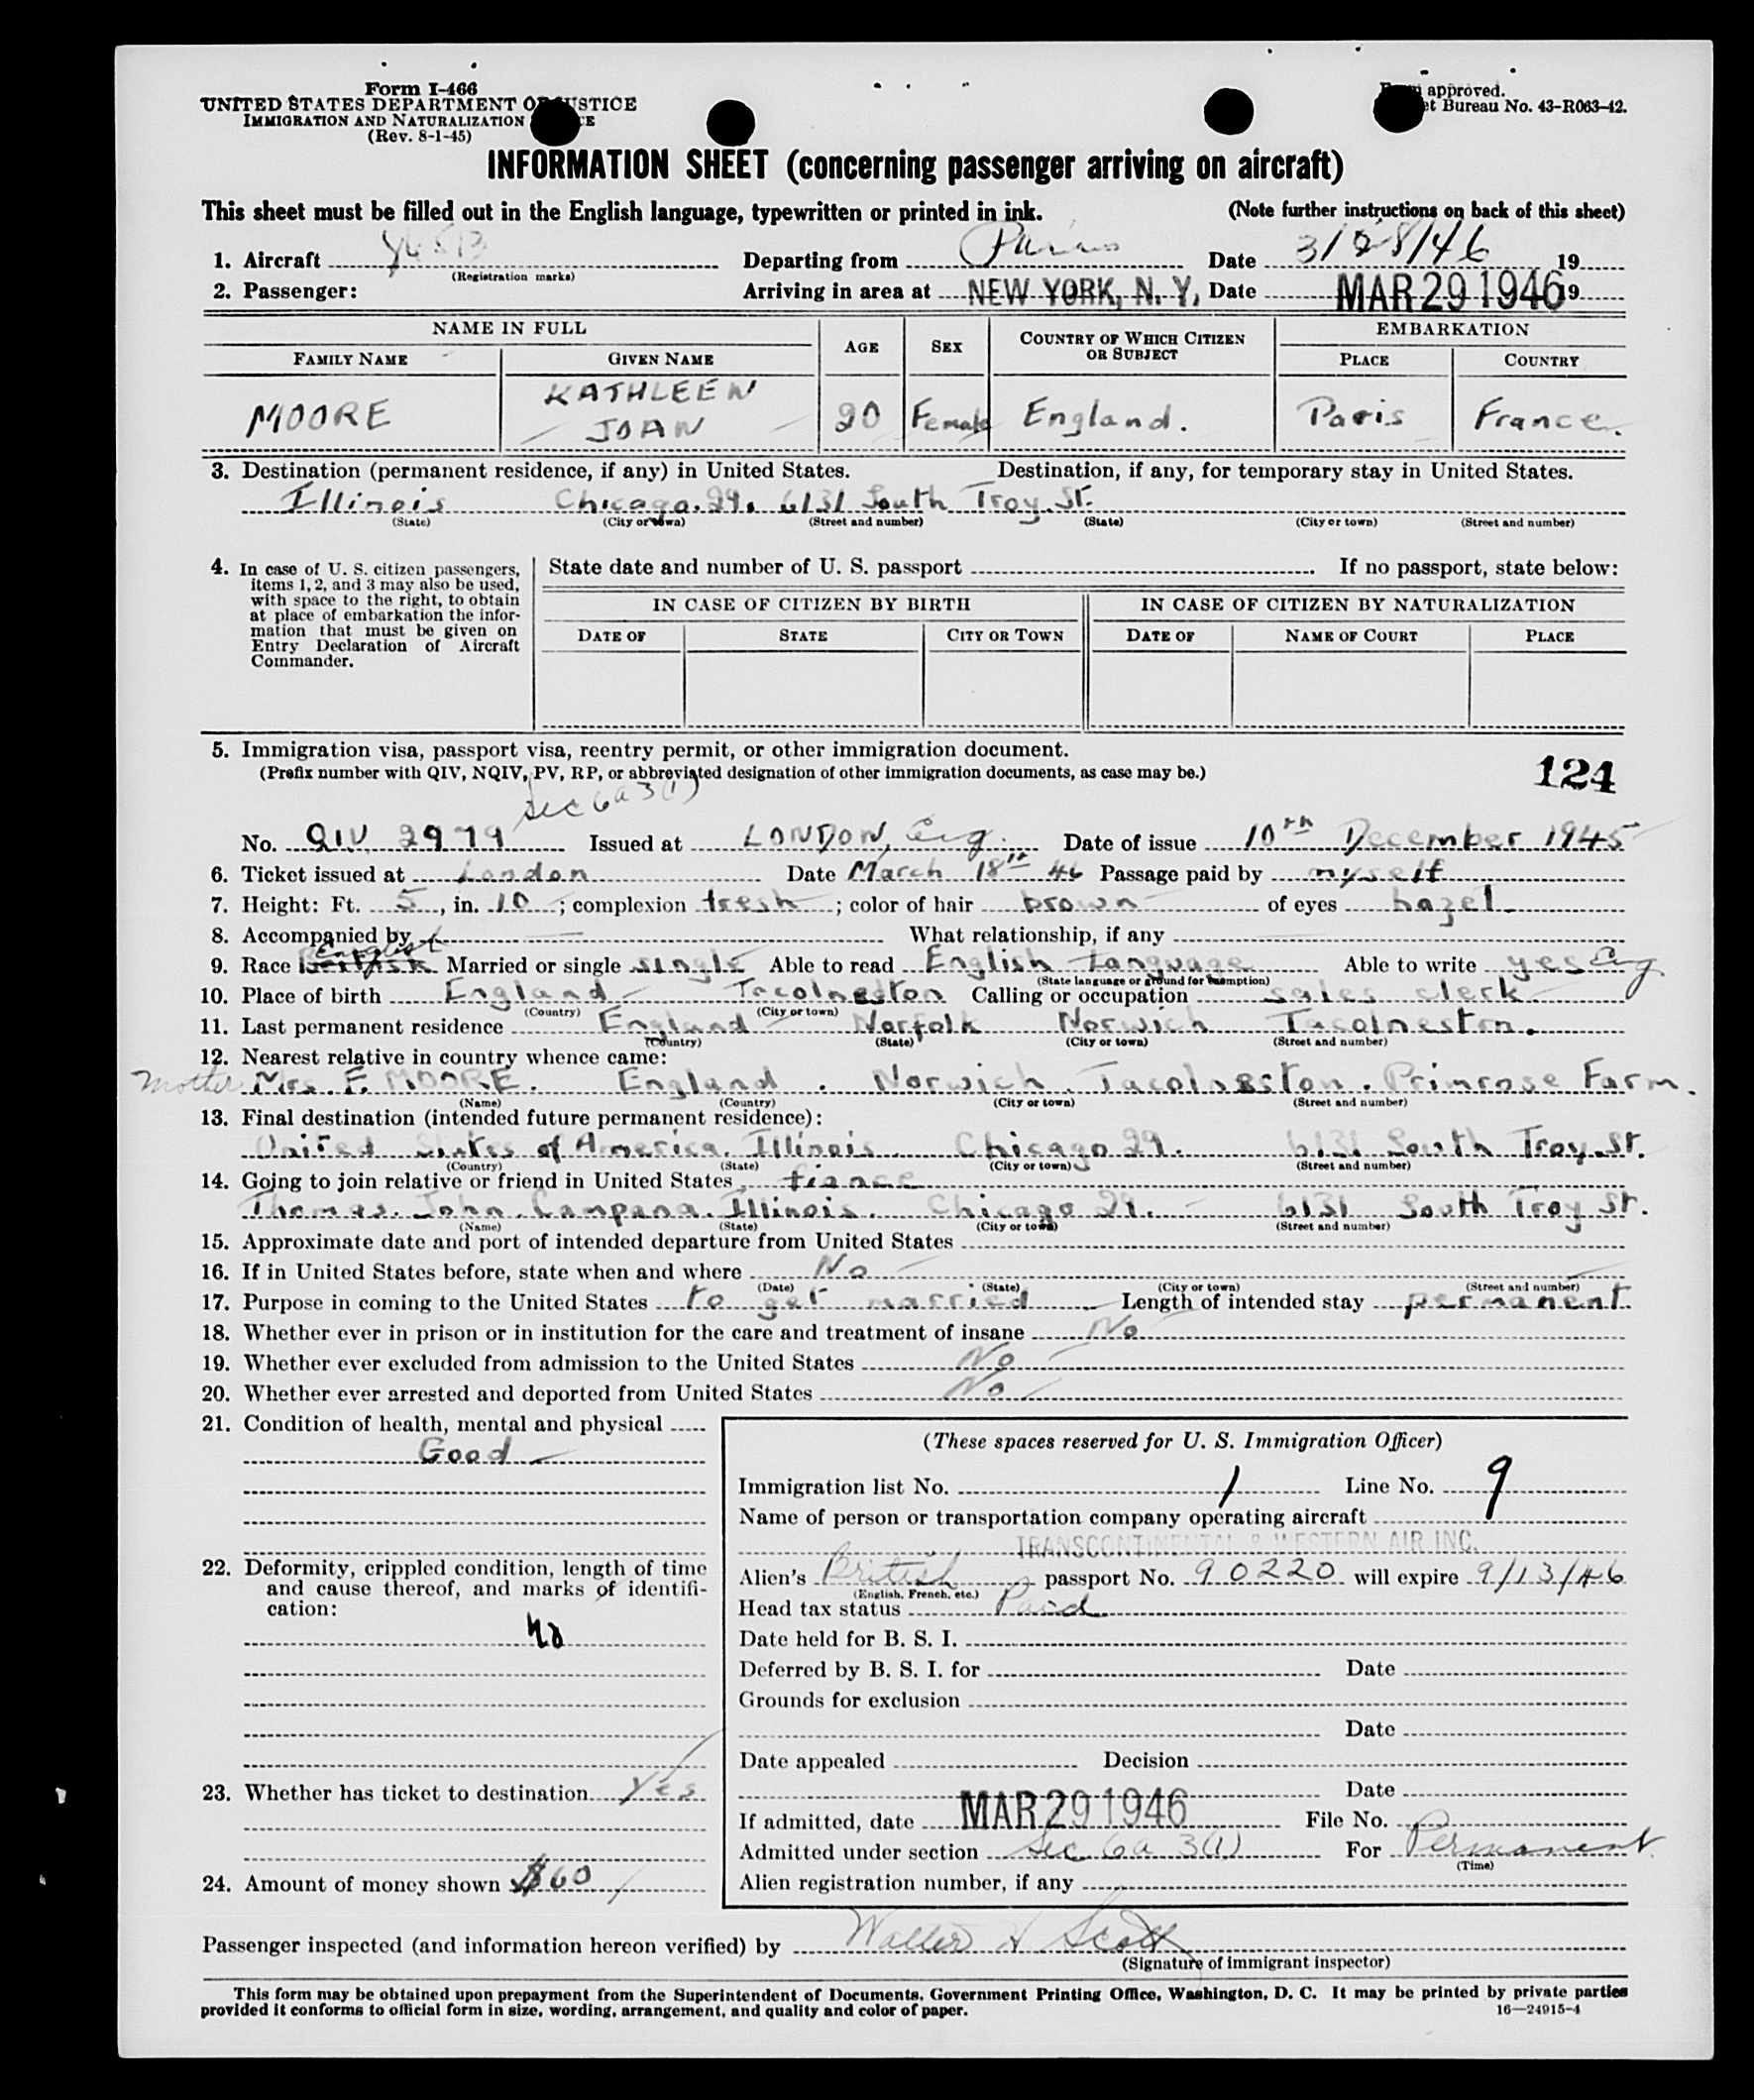 Form I-466
UNITED STATES DEPARTMENT OF JUSTICE
IMMIGRATION AND NATURALIZATION
(Rev. 8-1-45)
approved.
Bureau No. 43-R063-42.
INFORMATION SHEET (concerning passenger arriving on aircraft)
This sheet must be filled out in the English language, typewritten or printed in ink. (Note further instructions on back of this sheet)
1. Aircraft Departing from Paris Date 3/28/46 19
(Registration marks)
2. Passenger: Arriving in area at NEW YORK, N. Y. Date MAR 29 1946 19
NAME IN FULL AGE SEX COUNTRY OF WHICH CITIZEN OR SUBJECT EMBARKATION
FAMILY NAME GIVEN NAME PLACE COUNTRY
MOORE KATHLEEN JOAN 20 Female England. Paris France.
3. Destination (permanent residence, if any) in United States. Destination, if any, for temporary stay in United States.
Illinois Chicago. 29. 6131 South Troy. St.
(State) (City or town) (Street and number) (State) (City or town) (Street and number)
4. In case of U. S. citizen passengers, items 1, 2, and 3 may also be used, with space to the right, to obtain at place of embarkation the information that must be given on Entry Declaration of Aircraft Commander.
State date and number of U. S. passport If no passport, state below:
IN CASE OF CITIZEN BY BIRTH IN CASE OF CITIZEN BY NATURALIZATION
DATE OF STATE CITY OR TOWN DATE OF NAME OF COURT PLACE
5. Immigration visa, passport visa, reentry permit, or other immigration document.
(Prefix number with QIV, NQIV, PV, RP, or abbreviated designation of other immigration documents, as case may be.)
124
Sec 6a 3(1)
No. QIV 2979 Issued at LONDON, Eng. Date of issue 10th December 1945
6. Ticket issued at London Date March 18th 46 Passage paid by myself
7. Height: Ft. 5, in. 10; complexion fresh; color of hair brown of eyes hazel
8. Accompanied by What relationship, if any
9. Race English British Married or single single Able to read English Language Able to write yes Eng.
(State language or ground for exemption)
10. Place of birth England Tacolneston Calling or occupation sales clerk
(Country) (City or town)
11. Last permanent residence England Norfolk Norwich Tacolneston.
(Country) (State) (City or town) (Street and number)
12. Nearest relative in country whence came:
Mother Mrs. F. MOORE. England. Norwich. Tacolneston. Primrose Farm.
(Name) (Country) (City or town) (Street and number)
13. Final destination (intended future permanent residence):
United States of America. Illinois Chicago 29. 6131 South Troy. St.
(Country) (State) (City or town) (Street and number)
14. Going to join relative or friend in United States fiance
Thomas. John. Campana. Illinois. Chicago 29. 6131 South Troy St.
(Name) (State) (City or town) (Street and number)
15. Approximate date and port of intended departure from United States
16. If in United States before, state when and where No
(Date) (State) (City or town) (Street and number)
17. Purpose in coming to the United States to get married Length of intended stay permanent.
18. Whether ever in prison or in institution for the care and treatment of insane No
19. Whether ever excluded from admission to the United States No
20. Whether ever arrested and deported from United States No
21. Condition of health, mental and physical
Good
22. Deformity, crippled condition, length of time and cause thereof, and marks of identification:
No
23. Whether has ticket to destination Yes
24. Amount of money shown $60
(These spaces reserved for U. S. Immigration Officer)
Immigration list No. 1 Line No. 9
Name of person or transportation company operating aircraft
TRANSCONTINENTAL & WESTERN AIR INC.
Alien's British passport No. 90220 will expire 9/13/46
(English, French, etc.)
Head tax status Paid
Date held for B. S. I.
Deferred by B. S. I. for Date
Grounds for exclusion
Date
Date appealed Decision
Date
If admitted, date MAR 29 1946 File No.
Admitted under section Sec 6a 3(1) For Permanent
(Time)
Alien registration number, if any
Passenger inspected (and information hereon verified) by Walter H Scott
(Signature of immigrant inspector)
This form may be obtained upon prepayment from the Superintendent of Documents, Government Printing Office, Washington, D. C. It may be printed by private parties
provided it conforms to official form in size, wording, arrangement, and quality and color of paper. 16—24915-4